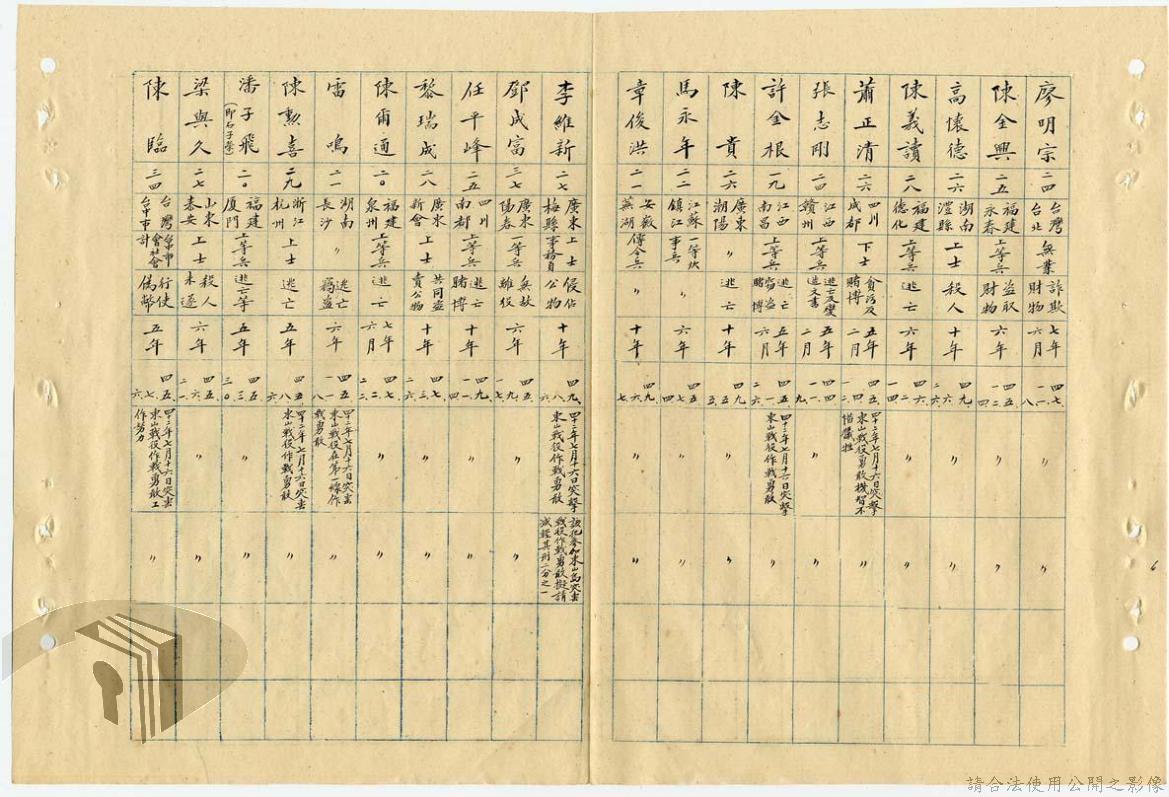 廖明宗
二四
台灣
台北
無業
詐欺
財物
七年
六月
四七、
一一、
八
〃
〃
陳全興
二五
福建
永春
上等兵
盜取
財物
六年
四五、
一二、
四
〃
〃
高懷德
二六
湖南
澧縣
上士
殺人
十年
四九、
六、
二六
〃
〃
陳義讀
二八
福建
德化
上等兵
逃亡
六年
四六、
一二、
四
〃
〃
蕭正清
二六
四川
成都
下士
貪污及
賭博
五年
二月
四十二年七月十六日突擊
東山戰役勇敢機智不
惜犧牲
〃
張志剛
二四
江西
贛州
上等兵
逃亡及變
造文書
五年
二月
〃
〃
許金根
一九
江西
南昌
上等兵
竊盜
賭博
五年
六月
四十二年七月十六日突擊
東山戰役作戰勇敢
〃
陳貴
二六
廣東
潮陽
〃
逃亡
五年
四五、
五、
〃
〃
馬永年
二二
江蘇
鎮江
一等炊
事兵
〃
六年
〃
〃
章俊洪
二一
安徽
蕪湖
傳令兵
〃
十年
四九、
六、
〃
〃
李維新
二七
廣東
梅縣
上士
事務員
侵佔
公物
十年
四九、
八、
四十二年七月十六日突擊
東山戰役作戰勇敢
該犯參加東山島突擊
戰役作戰勇敢擬請
減輕其刑二分之一
鄧成富
三七
廣東
陽春
上等兵
無故
離役
六年
四五、
〃
〃
任平峰
二五
四川
南部
上等兵
逃亡
賭博
十年
四九、
一一、
四
〃
〃
黎瑞成
二八
廣東
新會
上士
共同盜
賣公物
十年
四七、
三、
二六
〃
〃
陳爾通
二〇
福建
泉州
上等兵
逃亡
七年
六月
四七、
二、
〃
〃
雷鳴
二一
湖南
長沙
〃
逃亡
竊盜
六年
四五、
一一、
八
四十二年七月十六日突擊
東山戰役在第一線作
戰勇敢
〃
陳勲喜
二九
浙江
杭州
上士
逃亡
五年
四五、
八、
六
四十二年七月十六日突擊
東山戰役作戰勇敢
〃
潘子飛
(即石子榮)
二〇
福建
廈門
上等兵
逃亡等
五年
四五、
三、
三〇
〃
〃
梁興久
二七
山東
泰安
上士
殺人
未遂
六年
四五、
六、
二一
〃
〃
陳臨
三四
台灣
台中市
台中市
會社會
計
行使
偽幣
五年
四五、
七、
六
四十二年七月十六日突擊
東山戰役作戰勇敢工
作努力
〃
6
請合法使用公開之影像